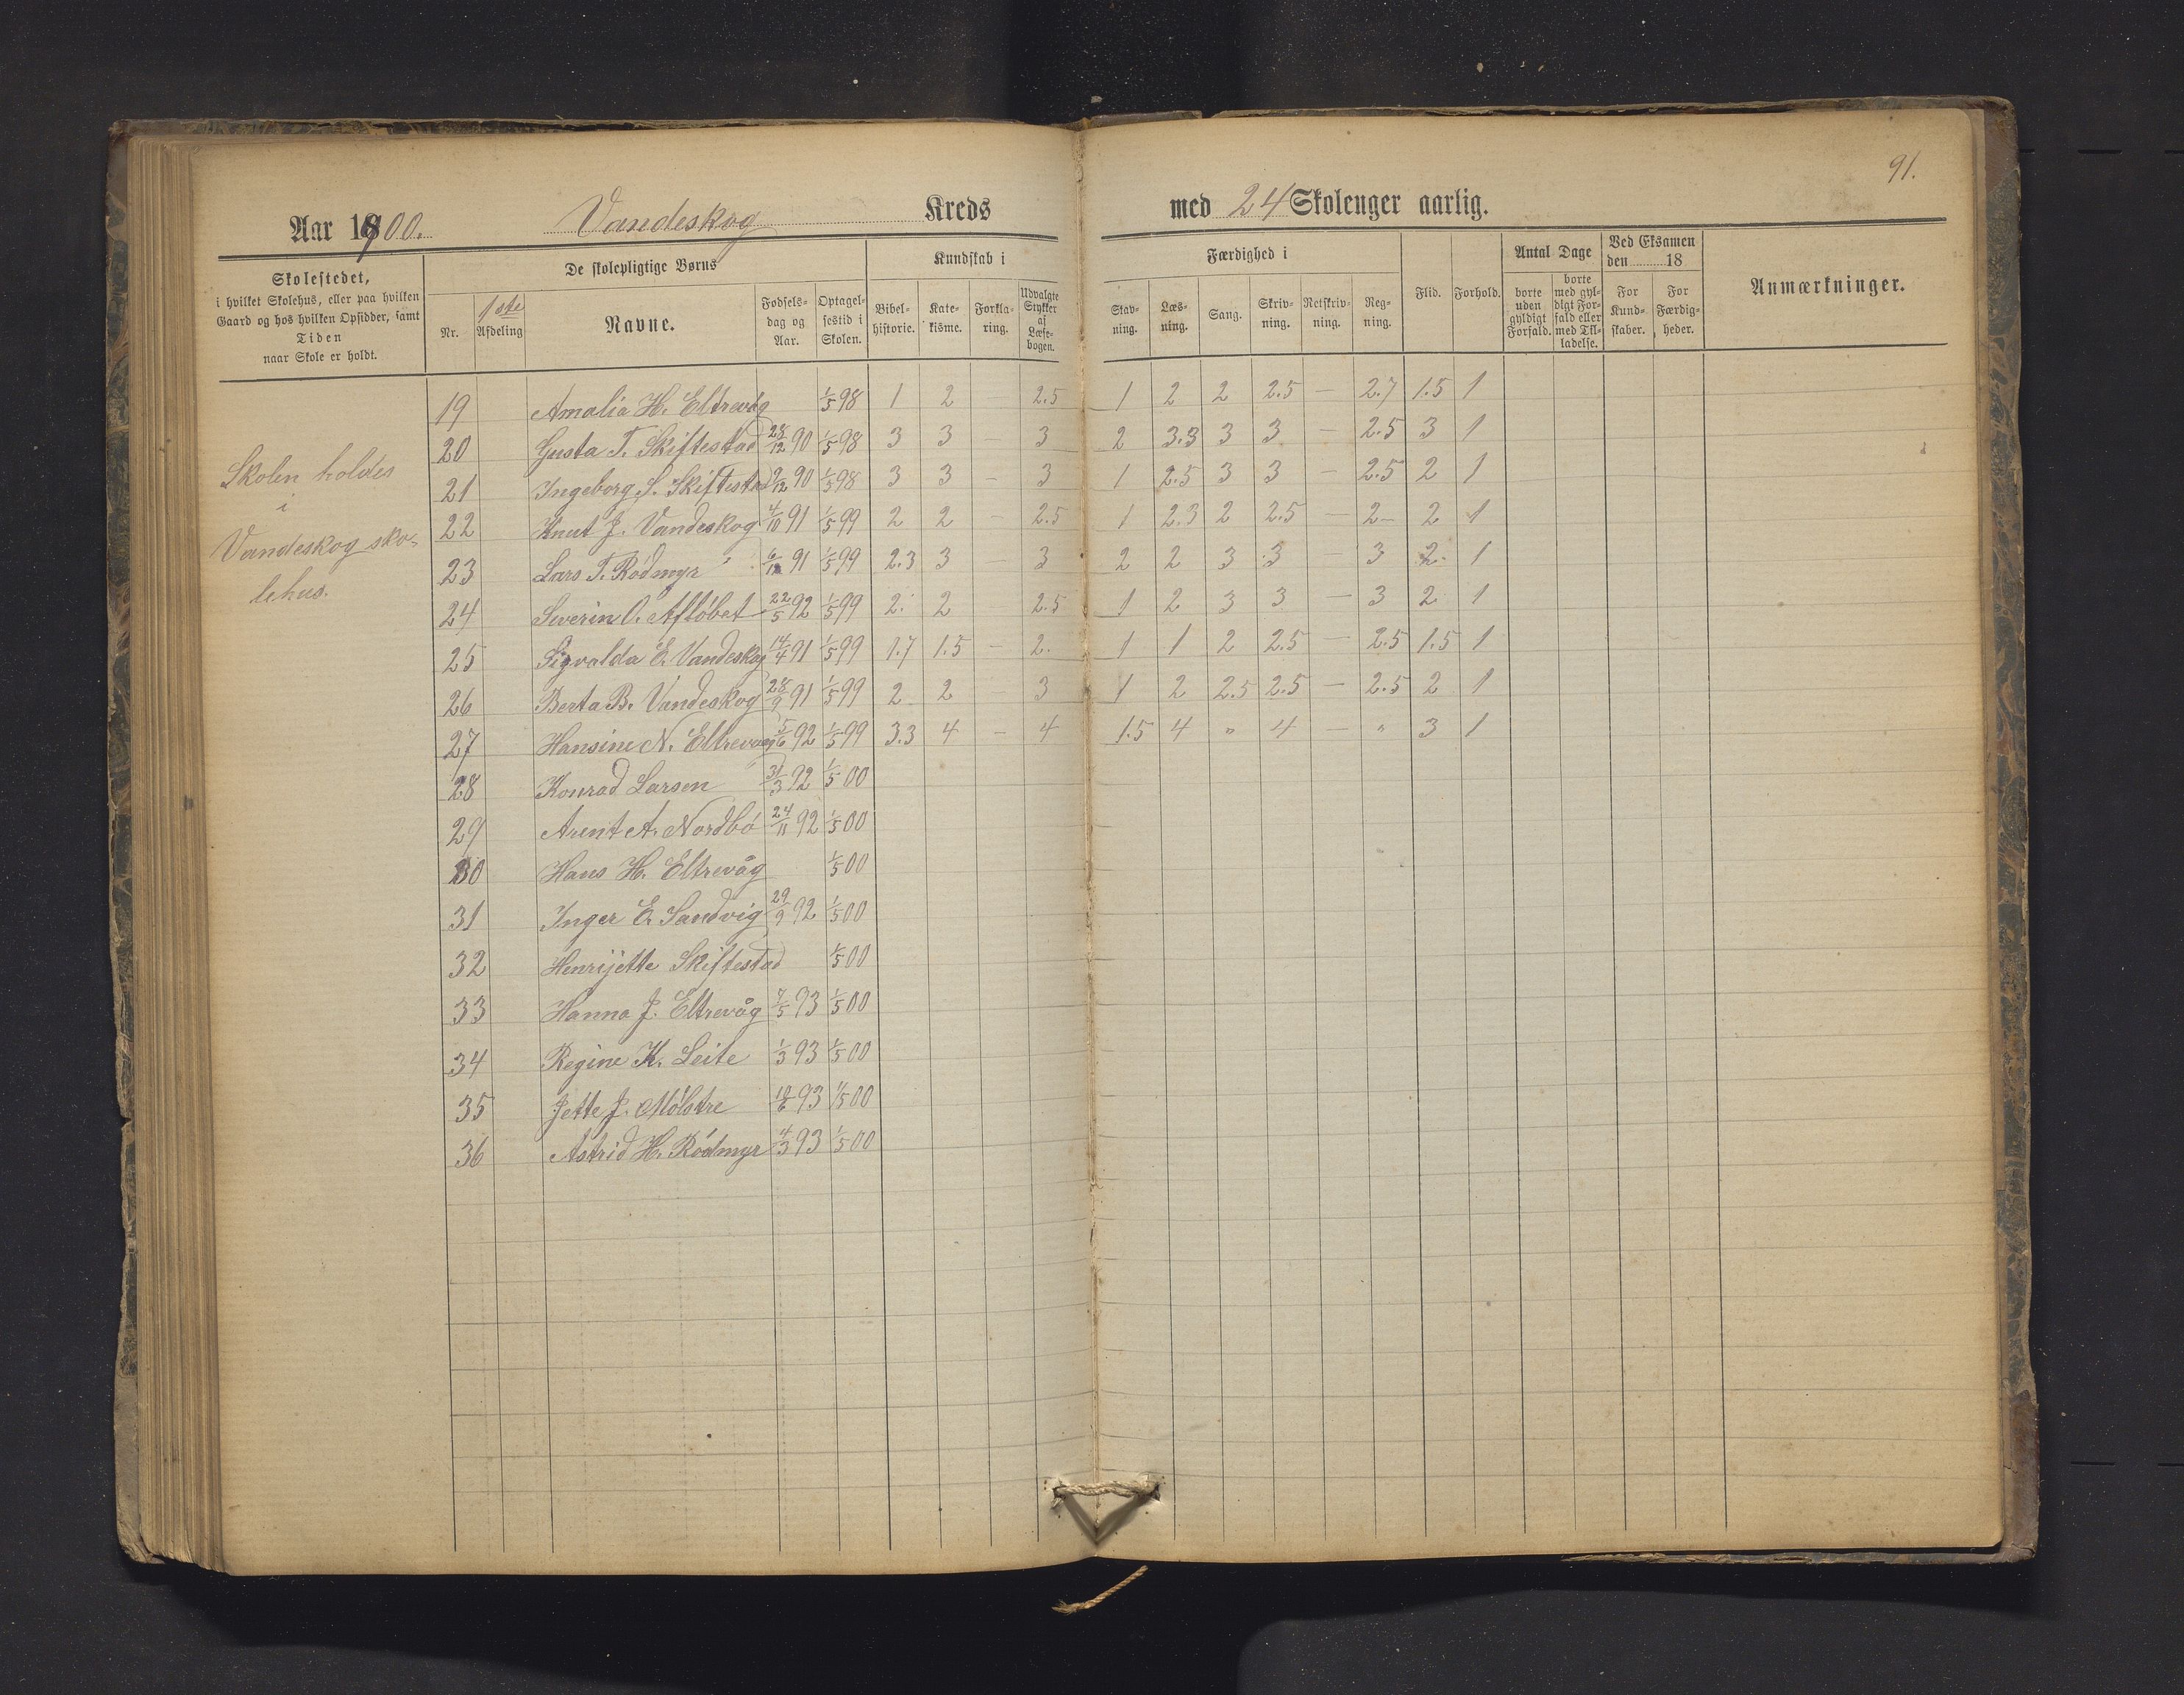 91.
Aar 1900. Vandeskog Kreds med 24 Skoleuger aarlig.
Skolestedet,
i hvilket Skolehus, eller paa hvilken
Gaard og hos hvilken Opsidder, samt
Tiden
naar Skole er holdt.
De skolepligtige Børns
Nr.
1ste
Afdeling
Navne.
Fødsels-
dag og
Aar.
Optagel-
sestid i
Skolen.
Kundskab i
Bibel-
historie.
Kate-
kisme.
Forkla-
ring.
Udvalgte
Stykker
af
Læse-
bogen.
Færdighed i
Stav-
ning.
Læs-
ning.
Sang.
Skriv-
ning.
Retskriv-
ning.
Reg-
ning.
Flid.
Forhold.
Antal Dage
borte
uden
gyldigt
Forfald.
borte
med gyl-
digt For-
fald eller
med Til-
ladelse.
Ved Eksamen
den 18
For
Kund-
skaber.
For
Færdig-
heder.
Anmærkninger.
Skolen holdes
i
Vandeskog sko-
lehus.
19 Amalia H. Eltrevåg 1/5 98 1 2 2.5 1 2 2 2.5 — 2.7 1.5 1
20 Gusta T. Skiftestad 28/12 90 1/5 98 3 3 — 3 2 3.3 3 3 — 2.5 3 1
21 Ingeborg S. Skiftestad 9/12 90 1/5 98 3 3 — 3 1 2.5 3 3 — 2.5 2 1
22 Knut J. Vandeskog 4/10 91 1/5 99 2 2 — 2.5 1 2.3 2 2.5 — 2 2 1
23 Lars T. Rödmyr 91 1/5 99 2.3 3 3 2 2 3 3 3 2 1
24 Severin O. Aflöbet 22/5 92 1/5 99 2 2 — 2.5 1 2 3 3 — 3 2 1
25 Sigvalda E. Vandeskog 14/4 91 1/5 99 1.7 1.5 — 2. 1 1 2 2.5 — 2.5 1.5 1
26 Berta B. Vandeskog 28/9 91 1/5 99 2 2 3 1 2 2.5 2.5 — 2.5 2 1
27 Hansine N. Eltrevaag 5/6 92 1/5 99 3.3 4 — 4 1.5 4 " 4 — " 3 1
28 Konrad Larsen 31/3 92 1/5 00
29 Arent A. Nordbö 24/11 92 1/5 00
30 Hans H. Eltrevåg 1/5 00
31 Inger E. Sandvig 29/9 92 1/5 00
32 Henrijette Skiftestad 1/5 00
33 Hanna J. Eltrevåg 7/5 93 1/5 00
34 Regine K. Leite 1/3 93 1/5 00
35 Jette J. Mölstre 10/6 93 1/5 00
36 Astrid H. Rödmyr 4/3 93 1/5 00